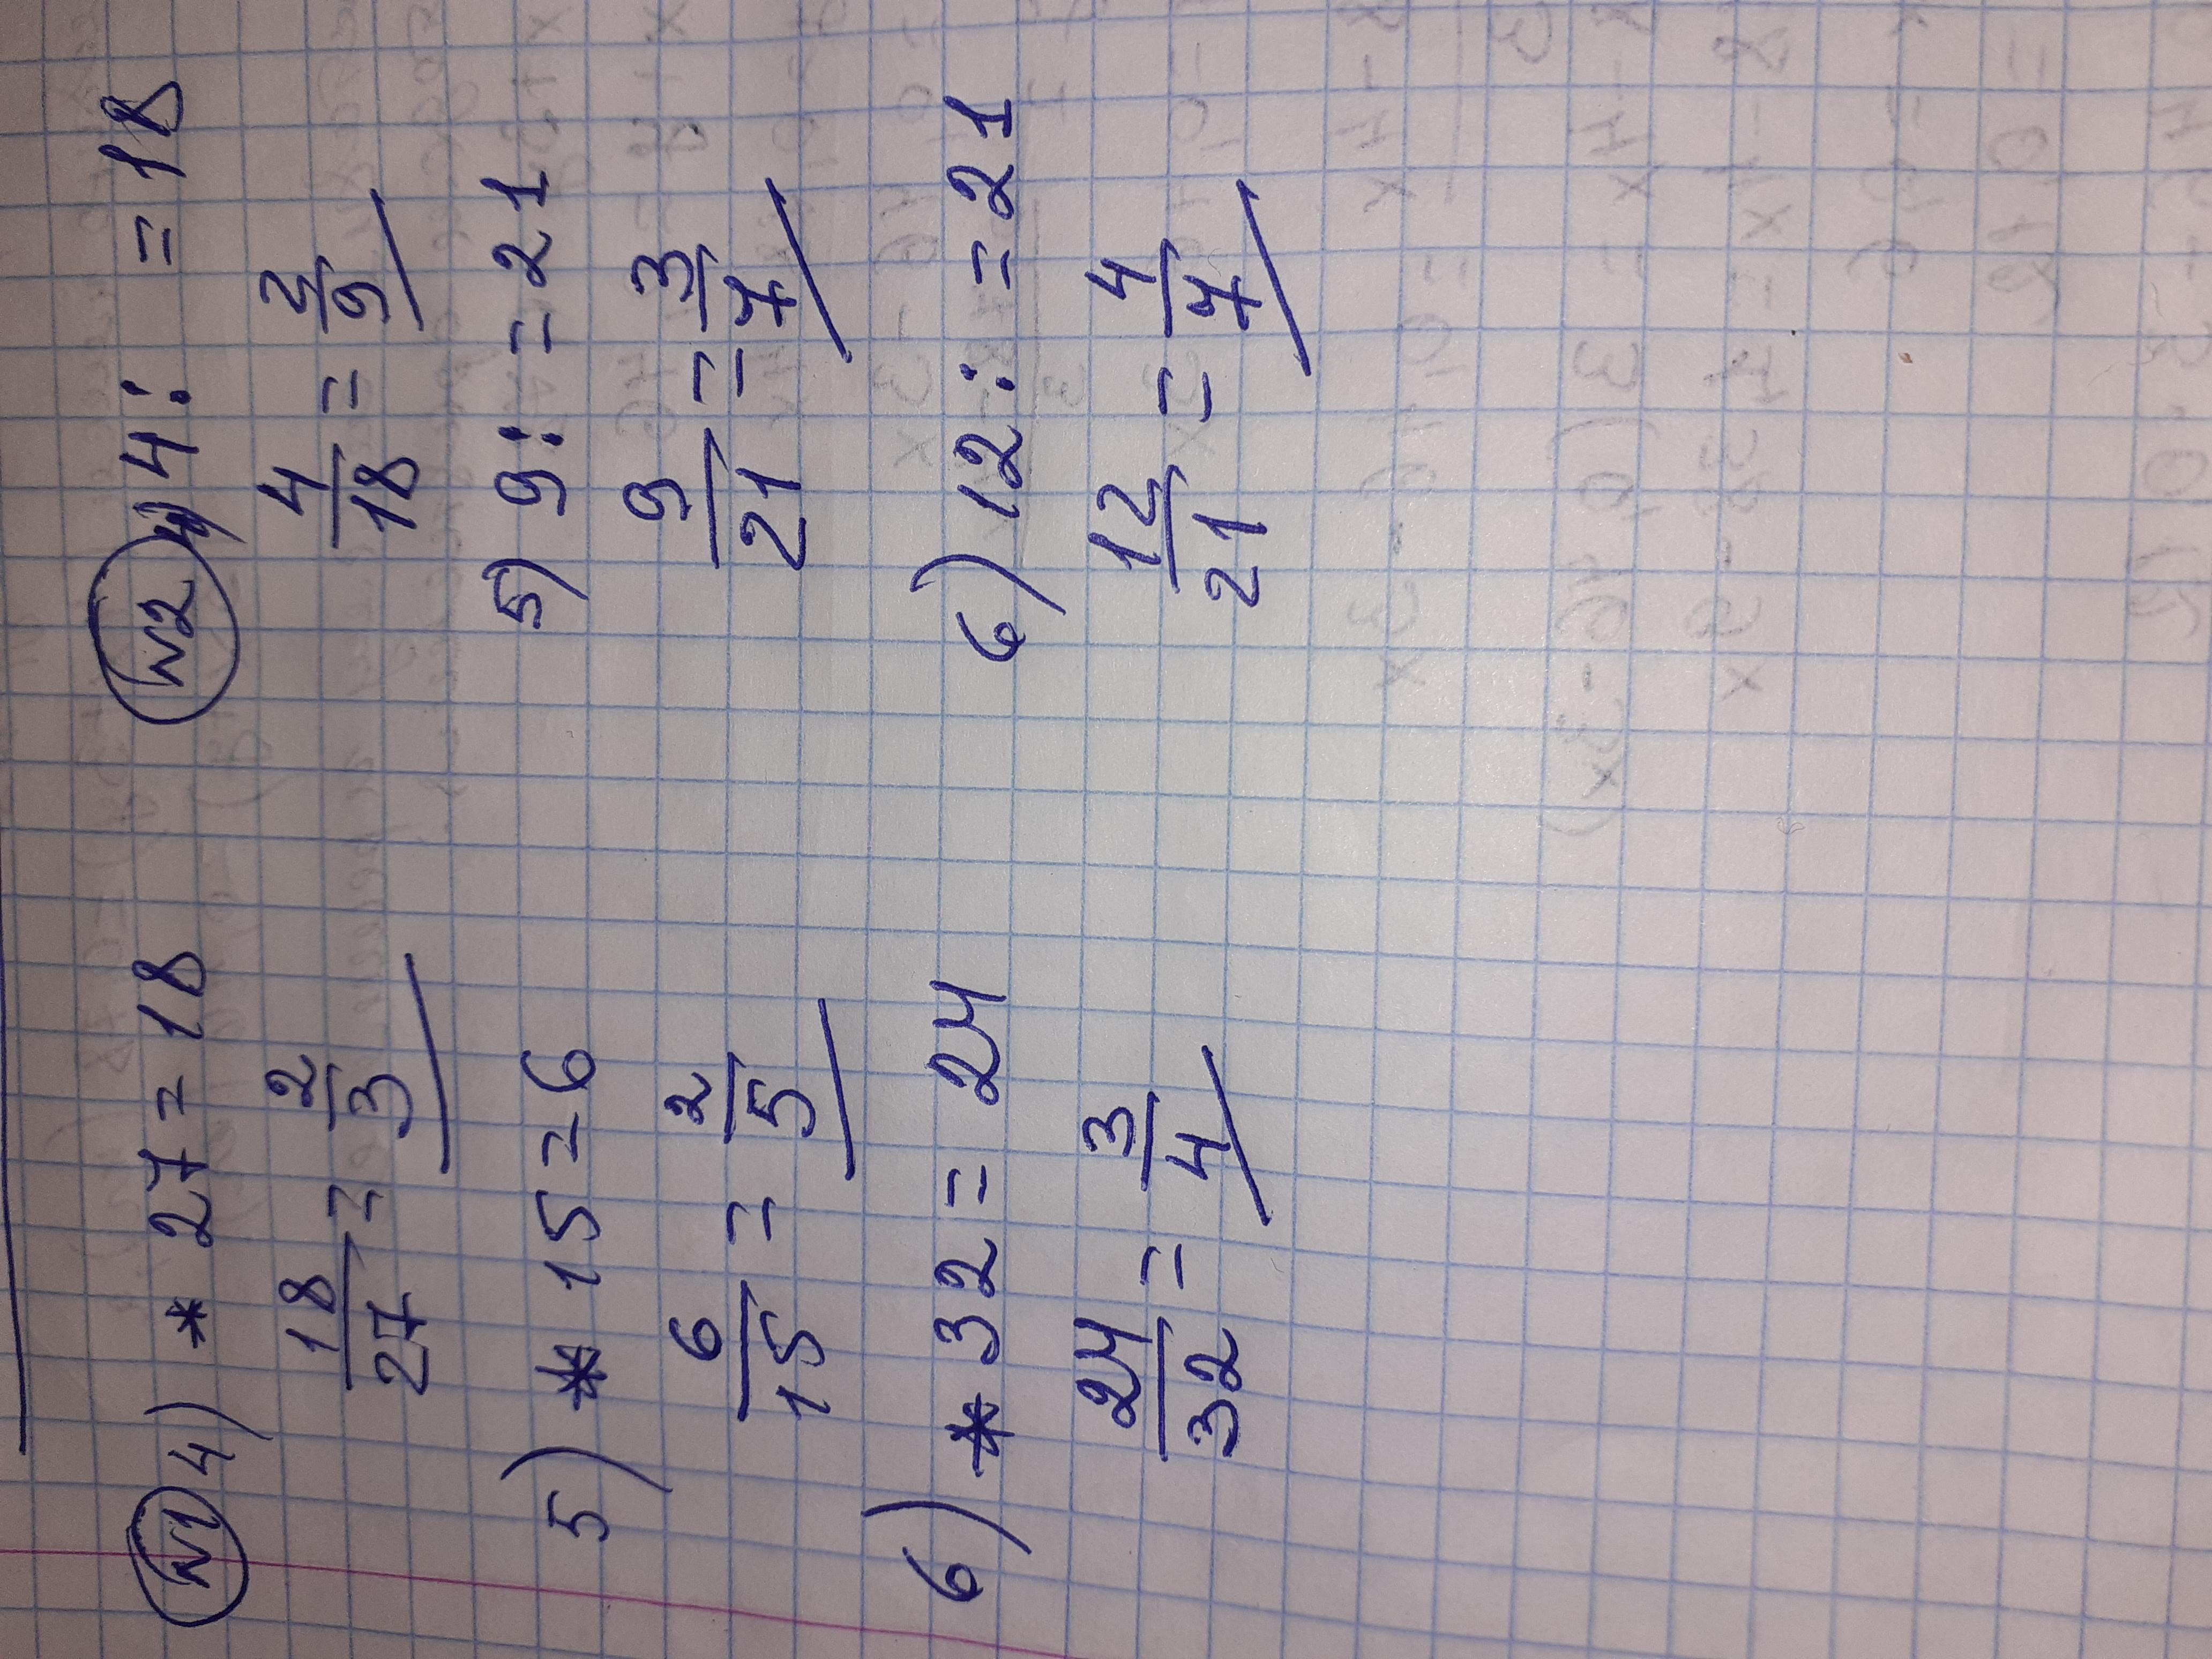 №1 4) * 27 = 18
18/27 = 2/3
5) * 15 = 6
6/15 = 2/5
6) * 32 = 24
24/32 = 3/4
№2 4) 4 : = 18
4/18 = 2/9
5) 9 : = 21
9/21 = 3/7
6) 12 : = 21
12/21 = 4/7